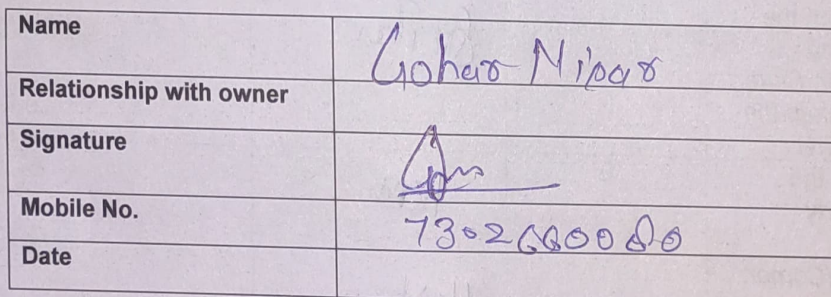 Name Gohar Nipar
Relationship with owner
Signature
Mobile No. 7302660080
Date